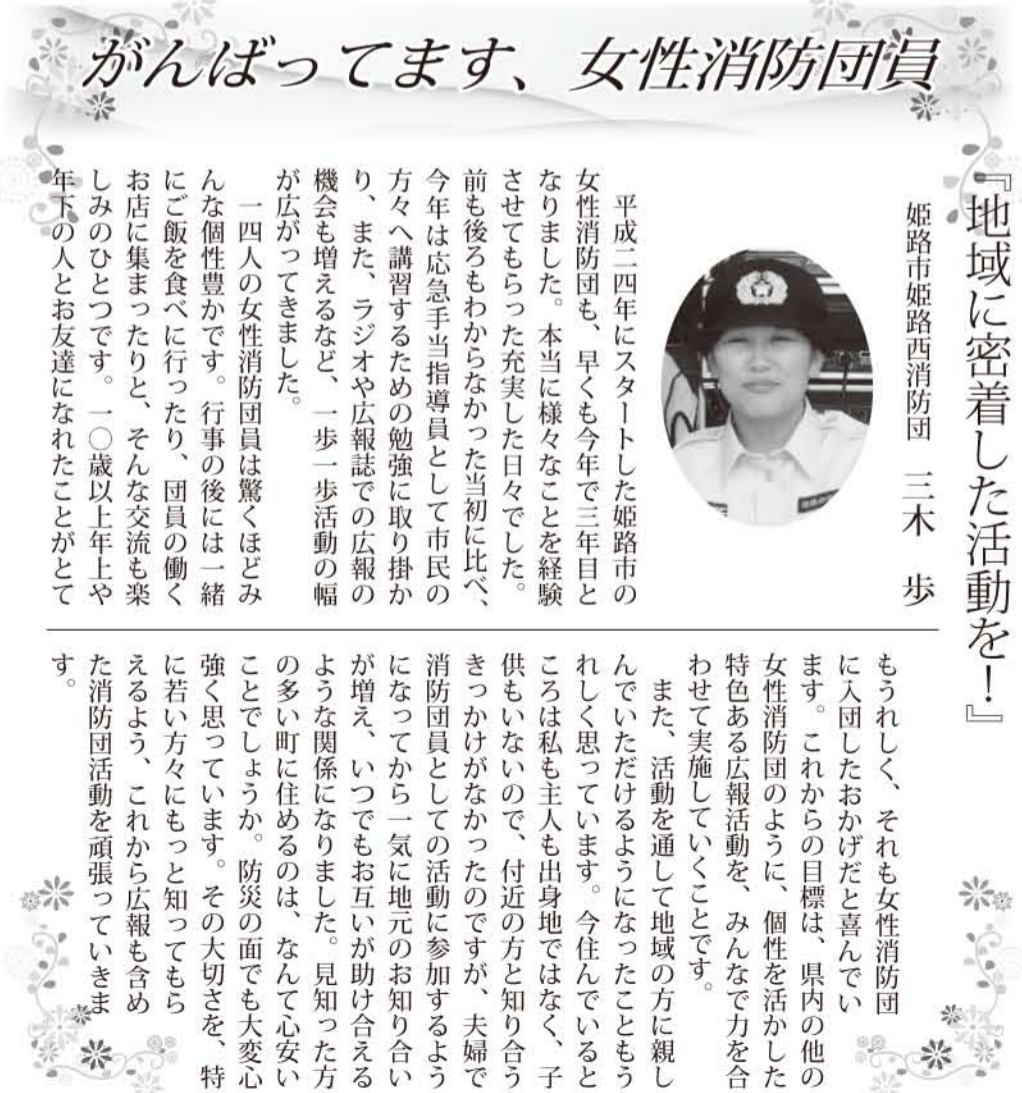 がんばってます、女性消防団員
『地域に密着した活動を！』
姫路市姫路西消防団　三木　歩
平成二四年にスタートした姫路市の
女性消防団も、早くも今年で三年目と
なりました。本当に様々なことを経験
させてもらった充実した日々でした。
前も後ろもわからなかった当初に比べ、
今年は応急手当指導員として市民の
方々へ講習するための勉強に取り掛か
り、また、ラジオや広報誌での広報の
機会も増えるなど、一歩一歩活動の幅
が広がってきました。
一四人の女性消防団員は驚くほどみ
んな個性豊かです。行事の後には一緒
にご飯を食べに行ったり、団員の働く
お店に集まったりと、そんな交流も楽
しみのひとつです。一〇歳以上年上や
年下の人とお友達になれたことがとて
もうれしく、それも女性消防団
に入団したおかげだと喜んでい
ます。これからの目標は、県内の他の
女性消防団のように、個性を活かした
特色ある広報活動を、みんなで力を合
わせて実施していくことです。
また、活動を通して地域の方に親し
んでいただけるようになったこともう
れしく思っています。今住んでいると
ころは私も主人も出身地ではなく、子
供もいないので、付近の方と知り合う
きっかけがなかったのですが、夫婦で
消防団員としての活動に参加するよう
になってから一気に地元のお知り合い
が増え、いつでもお互いが助け合える
ような関係になりました。見知った方
の多い町に住めるのは、なんて心安い
ことでしょうか。防災の面でも大変心
強く思っています。その大切さを、特
に若い方々にもっと知ってもら
えるよう、これから広報も含め
た消防団活動を頑張っていきま
す。